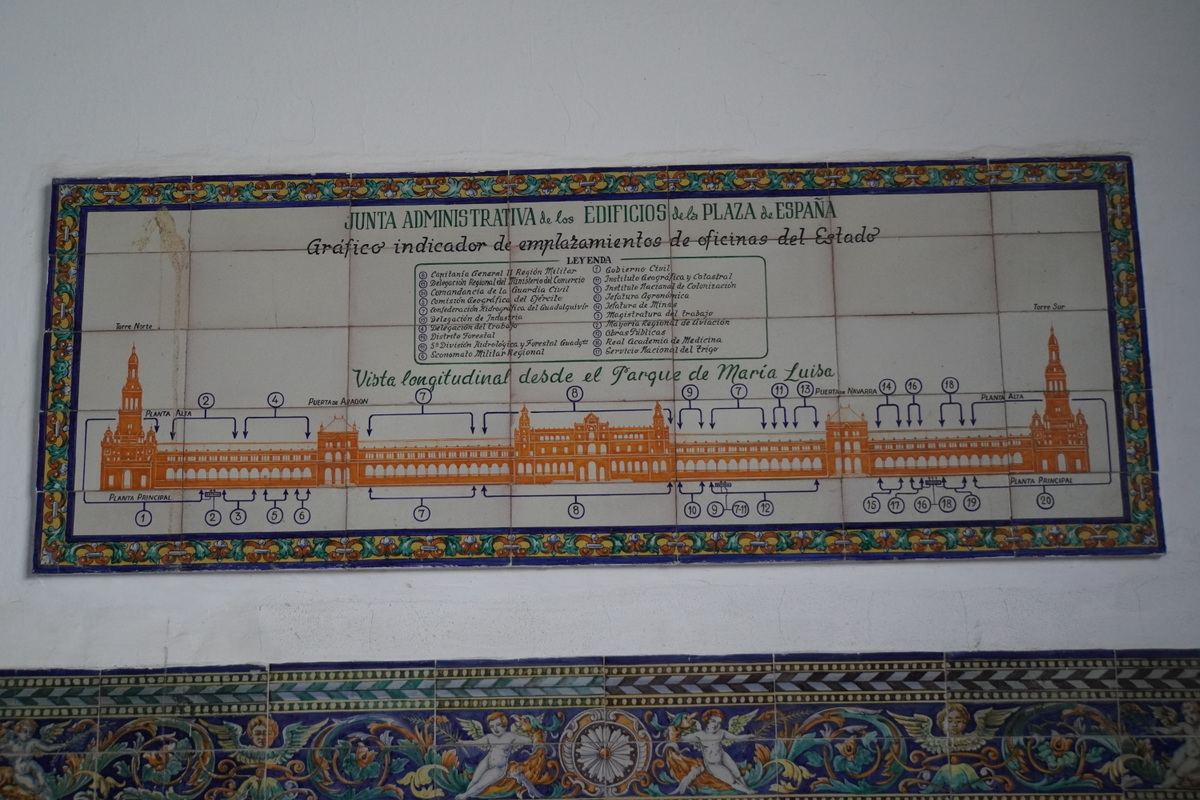 JUNTA ADMINISTRATIVA de los EDIFICIOS de la PLAZA de ESPAÑA
Gráfico indicador de emplazamientos de oficinas del Estado
LEYENDA
Capitanía General II Región Militar
Delegación Regional del Ministerio del Comercio
Comandancia de la Guardia Civil
Comisión Geográfica del Ejército
Confederación Hidrográfica del Guadalquivir
Delegación de Industria
Delegación del trabajo
Distrito Forestal
5ª División Hidrológica y Forestal
Economato Militar Regional
Gobierno Civil
Instituto Geográfico y Catastral
Instituto Nacional de Colonización
Jefatura Agronómica
Jefatura de Minas
Magistratura del trabajo
Mayoría Regional de Aviación
Obras Públicas
Real Academia de Medicina
Servicio Nacional del Trigo
Vista longitudinal desde el Parque de María Luisa
Torre Norte
Torre Sur
PLANTA ALTA
2
4
PUERTA DE ARAGON
7
8
9
7
11
13
PUERTA DE NAVARRA
14
16
18
PLANTA ALTA
PLANTA PRINCIPAL
PLANTA PRINCIPAL
1
2
3
5
6
7
8
10
9
7-11
12
15
17
16
18
19
20